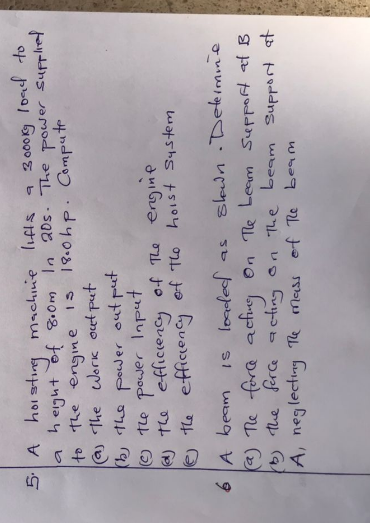 5. A hoisting machine lifts a 3000kg load to
a height of 8.0m in 20s. The power supplied
to the engine is 18.0hp. Compute
(a) The work output
(b) the power output
(c) the power input
(d) the efficiency of the engine
(e) the efficiency of the hoist system
6 A beam is loaded as shown. Determine
(a) The force acting on the beam support at B
(b) the force acting on the beam support at
A, neglecting the mass of the beam